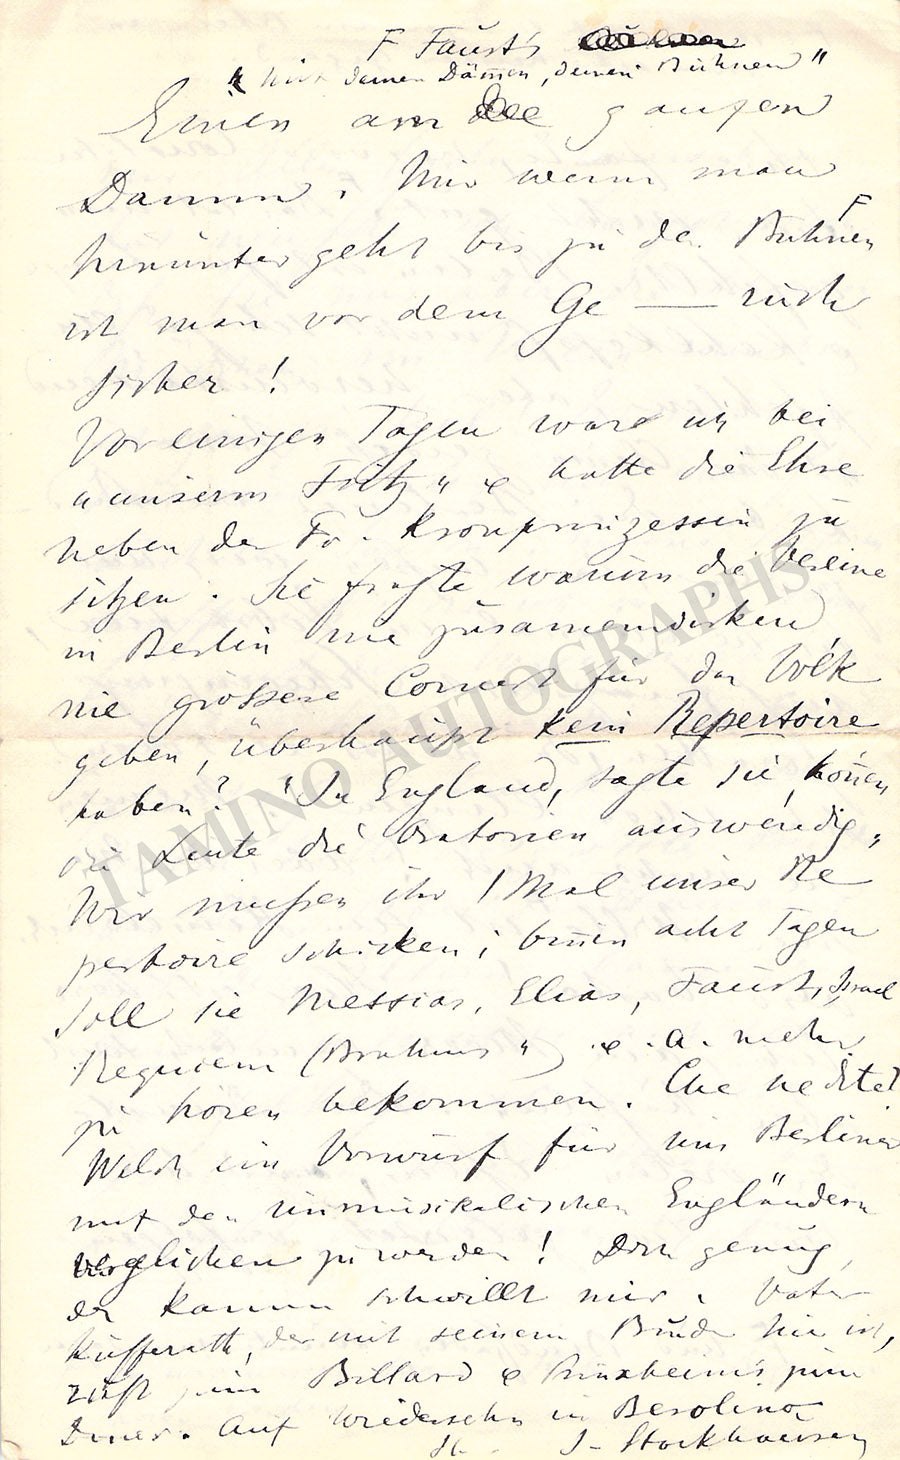 F Faust's
"mit deinen Dämmen, deinen Bühnen"
Einen am ganzen
Damm. Nur wenn man
hinunter geht bis zu den Bühnen F
ist man vor dem Ge — ruch
sicher!
Vor einigen Tagen war ich bei
"unserm Fritz" & hatte die Ehre
neben der Fr. Kronprinzessin zu
sitzen. Sie fragte warum die Vereine
in Berlin nie zusammenwirken
nie grössere Concerte für das Volk
geben, überhaupt kein Repertoire
haben? "In England, sagte sie, können
die Leute die Oratorien auswendig"
Wir müssen ihr 1 Mal unser Re
pertoire schicken; binnen acht Tagen
soll sie Messias, Elias, Faust, Israel
Requiem (Brahms") & . a. mehr
zu hören bekommen.
Welch ein Vorwurf für uns Berliner
mit den unmusikalischen Engländern
verglichen zu werden! Doch genug,
der Kamm schwillt mir. Vater
Kufferath, der mit seinem Bruder hier ist,
ruft zum Billard & zum
Diner. Auf Wiedersehn in Berolina
J. Stockhausen
TAMINO AUTOGRAPHS